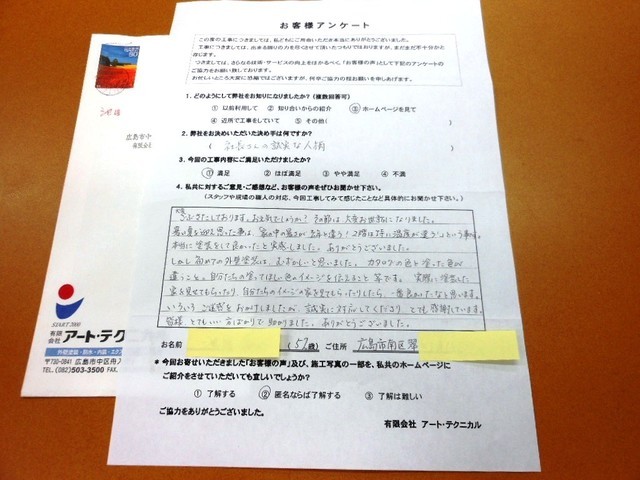 お客様アンケート
この度の工事につきましては、私どもにご用命いただき本当にありがとうございました。
工事につきましては、出来る限りの力を尽くさせて頂いたつもりではおりますが、まだまだ不十分かと
存じます。
つきましては、さらなる技術・サービスの向上をはかるべく、「お客様の声」として下記のアンケートの
ご協力をお願い致しております。
お忙しいところ大変に恐縮ではございますが、何卒ご協力の程お願いを申しあげます。
1. どのようにして弊社をお知りになりましたか? (複数回答可)
① 以前利用して ② 知り合いからの紹介 ③ ホームページを見て
④ 近所で工事をしていて ⑤ その他(
2. 弊社をお決めいただいた決め手は何ですか?
( 社長さんの誠実な人柄
3. 今回の工事内容にご満足いただけましたか?
① 満足 ② ほぼ満足 ③ やや満足 ④ 不満
4. 私共に対するご意見・ご感想など、お客様の声をぜひお聞かせ下さい。
(スタッフや現場の職人の対応、今回工事してみて感じたことなど具体的にお聞かせ下さい)
ごぶさたしております。お元気でしょうか? その節は大変お世話になりました。
暑い夏を迎え思った事は、家の中の暑さが去年と違う! 2階は特に温度が違う?という事
本当に塗装をして良かったと実感しました。ありがとうございました。
しかし初めての外壁塗装は、むずかしいと思いました。カタログの色と塗った色が
違うこと。自分たちの塗ってほしい色のイメージを伝えること等です。実際に塗装した
家を見せてもらったり、自分たちのイメージの家を見てもらったりしたら、一番良かったなと思います。
いろいろご迷惑をおかけしましたが、誠実に対応してくださりとても感謝しています。
皆様、とてもいい方ばかりで助かりました。ありがとうございました。
お名前 (57歳) ご住所 広島市南区翠
* 今回お寄せいただきました「お客様の声」及び、施工写真の一部を、私共のホームページに
ご紹介をさせていただいても宜しいでしょうか?
① 了解する ② 匿名ならば了解する ③ 了解は難しい
ご協力をありがとうございました。
有限会社 アート・テクニカル
広島市中
有限会
START 2001
有限会社 アート・テク
外壁塗装・防水・内装・エクス
〒730-0841 広島市中区舟入
TEL.(082)503-3500 FAX.